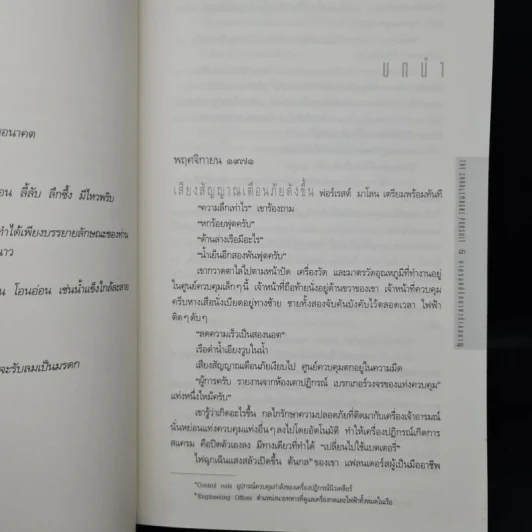 อนาคต
ลี้ลับ ลึกซึ้ง มีไหวพริบ
ทำได้เพียงบรรยายลักษณะของท่าน
นาว
โอนอ่อน เช่นน้ำแข็งใกล้ละลาย
จะรับลมเป็นมรดก
บทนำ
พฤศจิกายน ๑๙๗๑
เสียงสัญญาณเตือนภัยดังขึ้น ฟอร์เรสต์ มาโลน เตรียมพร้อมทันที
“ความลึกเท่าไร” เขาร้องถาม
“หกร้อยฟุตครับ”
“ด้านล่างเรือมีอะไร”
“น้ำเย็นอีกสองพันฟุตครับ”
เขากวาดตาไล่ไปตามหน้าปัด เครื่องวัด และมาตรวัดอุณหภูมิที่ทำงานอยู่
ในศูนย์ควบคุมเล็กๆ นี้ เจ้าหน้าที่ถือท้ายนั่งอยู่ด้านขวาของเขา เจ้าหน้าที่ควบคุม
ครีบหางเสือนั่งเบียดอยู่ทางซ้าย ชายทั้งสองจับคันบังคับไว้ตลอดเวลา ไฟฟ้า
ติดๆ ดับๆ
“ลดความเร็วเป็นสองนอต”
เรือดำน้ำเอียงวูบในน้ำ
เสียงสัญญาณเตือนภัยเงียบไป ศูนย์ควบคุมตกอยู่ในความมืด
“ผู้การครับ รายงานจากห้องเตาปฏิกรณ์ เบรกเกอร์วงจรของแท่งควบคุมª
แท่งหนึ่งไหม้ครับ”
เขารู้ว่าเกิดอะไรขึ้น กลไกรักษาความปลอดภัยที่ติดมากับเครื่องเจ้าอารมณ์
นั่นหย่อนแท่งควบคุมแท่งอื่นๆ ลงไปโดยอัตโนมัติ ทำให้เครื่องปฏิกรณ์เกิดการ
สแครม คือปิดตัวเองลง มีทางเดียวที่ทำได้ “เปลี่ยนไปใช้แบตเตอรี่”
ไฟฉุกเฉินแสงสลัวเปิดขึ้น ต้นกลᵇของเขา แฟลนเดอร์สผู้เป็นมืออาชีพ
ª Control rods อุปกรณ์ควบคุมกำลังของเครื่องปฏิกรณ์นิวเคลียร์
ᵇ Engineering Officer ตำแหน่งนายทหารที่ดูแลเครื่องกลและไฟฟ้าทั้งหมดในเรือ